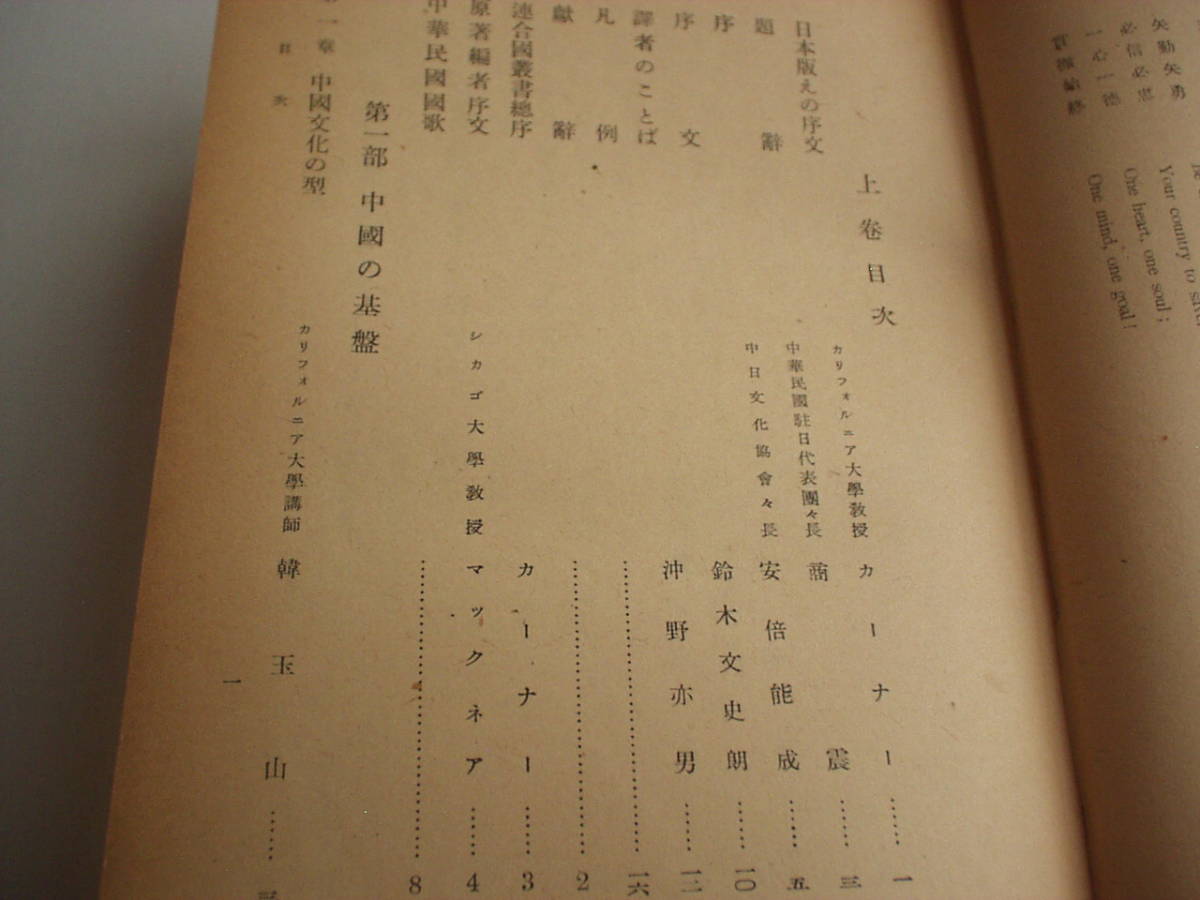 矢勤矢勇
必信必忠
一心一德
貫徹始終
Your country to
One heart, one soul;
One mind, one goal!
上卷目次
日本版えの序文 カリフォルニア大學教授 カーナー……一
題辭 中華民國駐日代表團々長 商震……三
序 中日文化協會々長 安倍能成……五
序文 鈴木文史朗……一〇
譯者のことば 沖野亦男……一二
凡例……一六
獻辭……2
連合國叢書總序 カーナー……3
原著編者序文 シカゴ大學教授 マックネア……4
中華民國國歌……8
第一部 中國の基盤
一章 中國文化の型 カリフォルニア大學講師 韓玉山……
目次 一